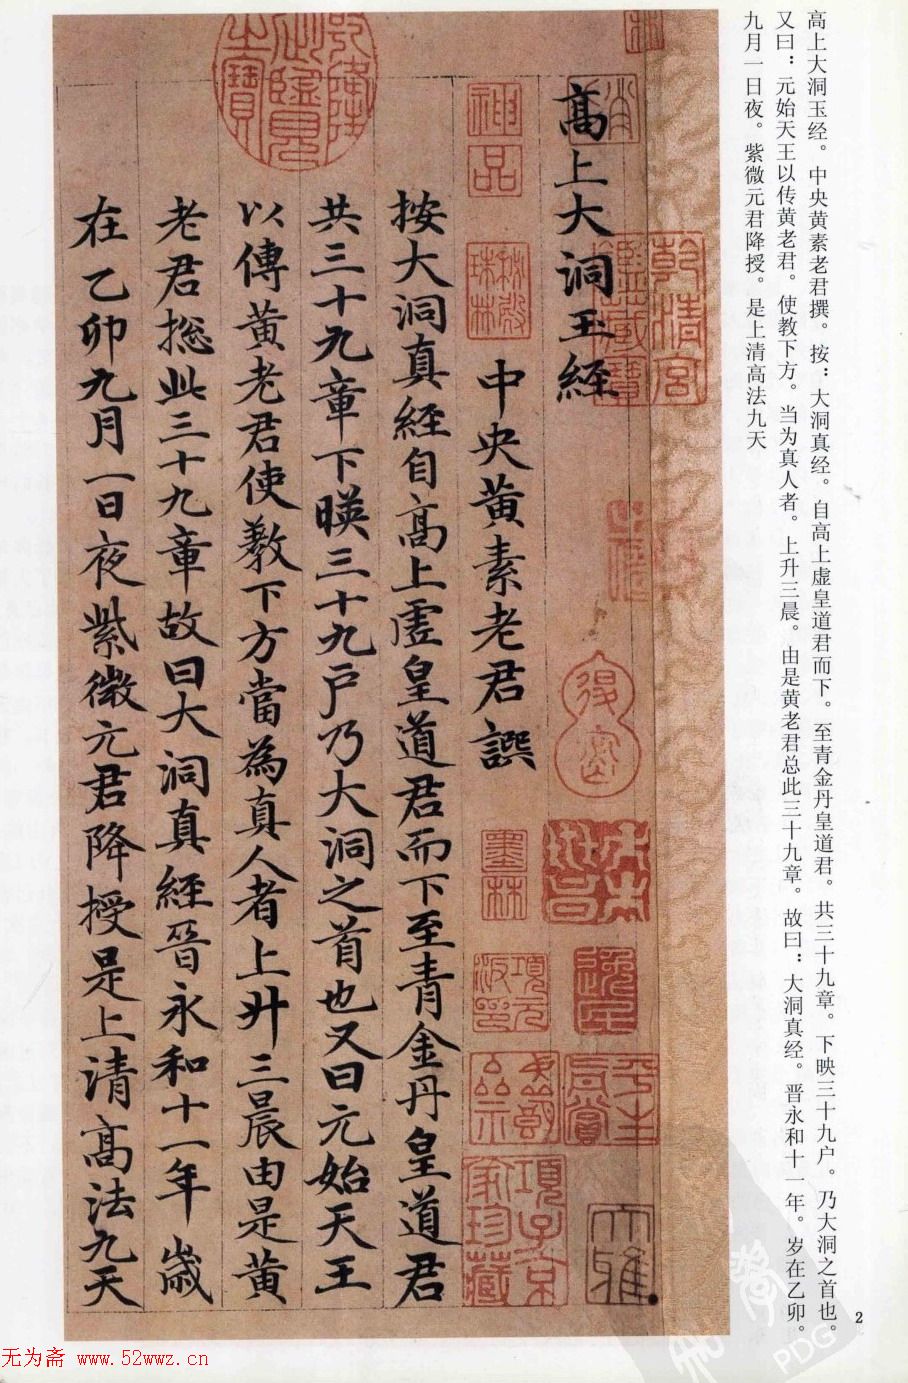 高上大洞玉经。中央黄素老君撰。按：大洞真经。自高上虚皇道君而下。至青金丹皇道君。共三十九章。下映三十九户。乃大洞之首也。
又曰：元始天王以传黄老君。使教下方。当为真人者。上升三晨。由是黄老君总此三十九章。故曰：大洞真经。晋永和十一年。岁在乙卯。
九月一日夜。紫微元君降授。是上清高法九天
高上大洞玉經
中央黄素老君譔
按大洞真經自高上虛皇道君而下至青金丹皇道君
共三十九章下暎三十九戶乃大洞之首也又曰元始天王
以傳黄老君使教下方當為真人者上升三晨由是黄
老君揔此三十九章故曰大洞真經晉永和十一年歲
在乙卯九月一日夜紫微元君降授是上清高法九天
乾隆御覽之寶
乾清宮鑑藏寶
神品
墨林
項元汴印
平生真賞
項子京家珍藏
大雅
2
无为斋 www.52wwz.cn
PDG